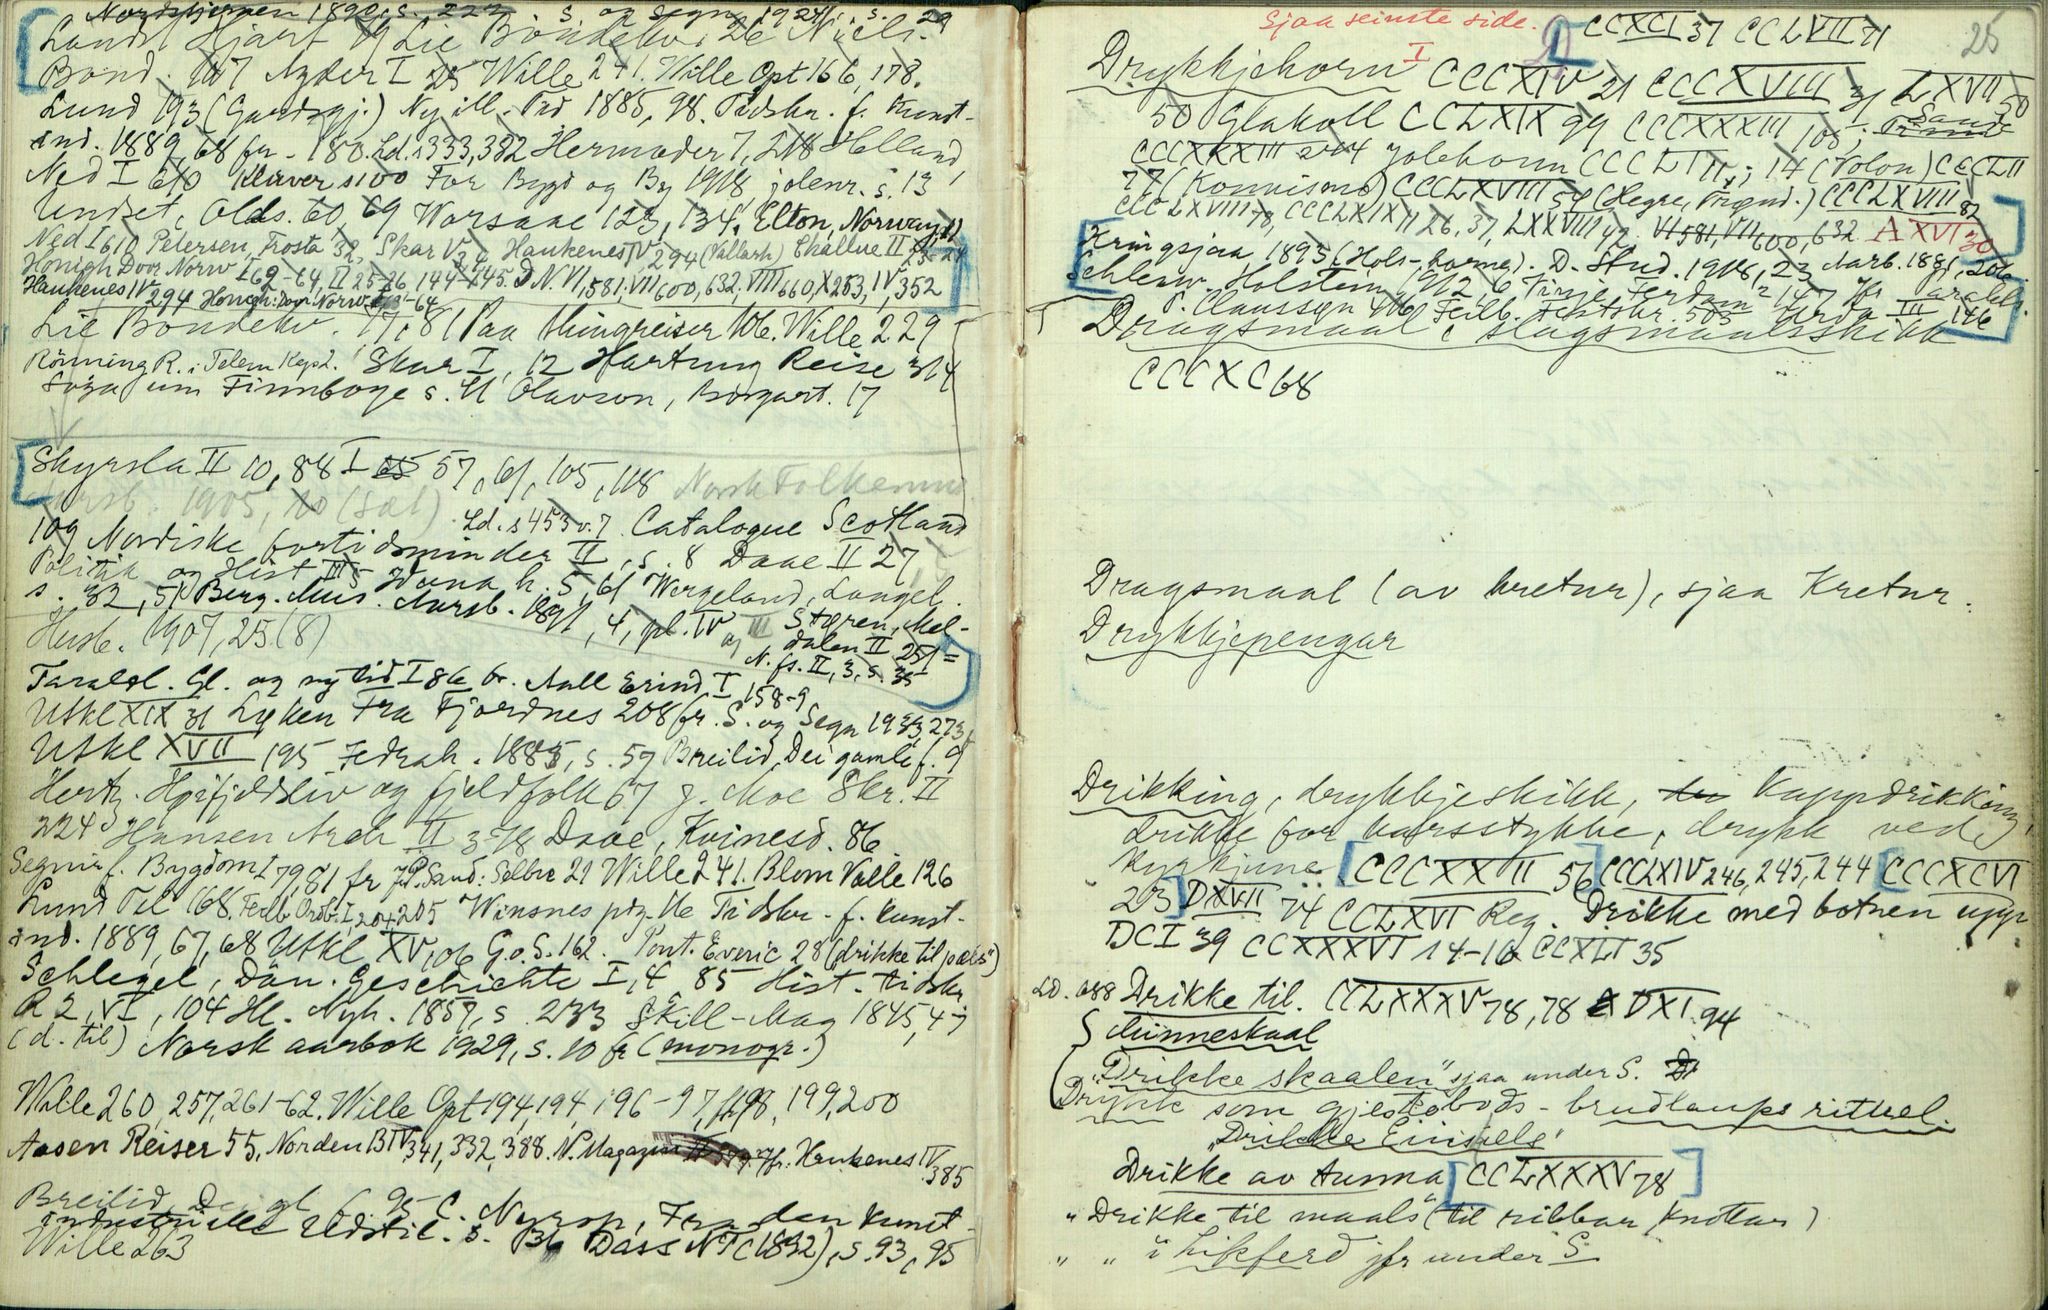 Nordstjernen 1890, s. 222 s. og segn 1924, s. 29
Landst Hjart 19 Lie Bondeliv. 26 Niels.
Bond. 107 Ayder I 25 Wille 241. Wille Opt 166, 178.
Lund 193 (Gardsgj.) Ny ill. Tid 1885, 98. Tidskr. f. Kunst-
ind. 1889, 68 fr - 180. Ld. s 333, 382 Hermoder 7, 218 Helland,
Ned I 610 Kluver s 100 For Bygd og By 1918 jolenr. s. 13
Undset, Olds. 60, 69 Worsaae 123, 134, Elton, Norway
Ned I 610 Petersen, Frosta 32, Skar V 34 Haukenes IV 294 (Vallarh) Challue II 23-24
Honigh Door Norw I 62-64, II 25-26, 144-145. D.N. VI, 581, VII 600, 632, VIII 660 X 253, IV, 352
Haukenes IV 294 Honigh: Door Norw I 63-64
Lie Bondeliv. 17, 81 Paa thingreiser 106. Wille 229
Rönning R. i Telem Kap 2. Skar I, 12 Hartung Reise 314
Soga um Finnboge s. 41 Olavson, Bogart. 17
Skyrsla II 10, 88 I 65 57, 61, 105, 118 Norsk Folkemus
aarsb. 1905, 20 (sal)
Ld. s 453 v. 7. Catalogue Scotland
109 Nordiske fortidsminder II, s. 8 Daae II 27,
Politik og Hist III 5 Iduna h. 5, 61 Wergeland, Langel.
s. 32, 51 Berg. Mus. Aarsb. 1891, 4, pl. IV og III Støren, Mel-
dalen II 251 =
Husb. 1907, 25 (8) N. fs. II, 3, s. 35
Tarald. Gl. og ny tid I 86 fr. Aall Erind I 158-9
Utkl XIX 31 Lyken Fra Fjordnes 208 fr. S. og Segn 1933, 273,
Utkl XVII 195 Fedrah. 1885, s. 59 Breilid, Dei gamle f. 9
Hertz. Høifjeldsliv og fjeldfolk 67 J. Moe Skr. II
224 Hansen Arch II 378 Daae, Kvinesd. 86
Segnir f. Bygdom I 79, 81 fr J.P. Sand: Selbre 21 Wille 241. Blom Valle 126
Lund Tel 168. Feilb Ordb. I, 204, 205 Winsnes ptg. 116 Tidskr. f. Kunst-
ind. 1889, 67, 68 Utkl XV, 06 G.o.S. 162. Pont. Everie 28 (drikke til pæls")
Schlegel, Dän. Geschichte I, 4 85 Hist. tidskr.
R 2, VI, 104 Hl. Nyh. 1859, s 233 Skill-Mag 1845, 47
(d. til) Norsk aarbok 1929, s. 10 fr (monogr.)
Wille 260, 257, 261-62. Wille Opt 194, 194, 196-97, 198, 199, 200
Aasen Reiser 55, Norden B IV 341, 332, 388. N. Magazin jfr. Haukenes IV 385
Breilid De gl f 95 C. Nyrop, Fra den kunst-
industrielle Udstil. s. 36 Dass NT (1892), s. 93, 95
Wille 263
sjaa seinste side. D CCXCI 37 CCLVIII 71 25
Drykkjehorn I CCCXIV 21 CCCXVIII 31 LXVII 50
50 Glakoll CCLXIX 99 CCCXXXIII 105, Sand
CCCXXXIII 204 Jolehorn CCCLI 11, ; 14 (Polon) CCCLII
77 (Konnismo) CCCLXVIII 59 (Hegre, Trønd.) CCCLXVIII 82
CCCLXVIII 78, CCCLXIX 11 26, 37, LXXVIII 42 VI 581, VII 600, 632 A XVI 30
Kringsjaa 1893 (Hols-hornet). D. Stud. 1918, 23 Aarb. 1881, 206.
Schlesw. Holstein 1912 6 Tinje Ferdam 2 147 jfr Taralds.
P. Claussøn 416 Feilb. Festskr. 505 Urda III 146
Dragsmaal i slagsmaalsskikk
CCCXC 68
Dragsmaal (av kretur), sjaa Kretur.
Drykkjepengar
Drikking, drykkjeskikk, Kappdrikking,
drikke for karsstykke, drykk ved
kyrkjune [CCCXXII 56] CCCLXIV 246, 245, 244 [CCCXCVI
203] DXVII 74 CCLXVI Reg. Drikke med botnen upp
DCI 39 CCXXXVI 14-16 CCXLI 35
LD. 688 Drikke til. CCLXXXV 78, 78 DXI 94
Minneskaal
"Drikke skaalen" sjaa under S.
Drykk som gjestebods-brudlaups rituel.
"Drikke Einsiele"
Drikke av tunna [CCLXXXV 78]
" Drikke til maals" (til ribbar, knottar)
" " i Likferd jfr under S